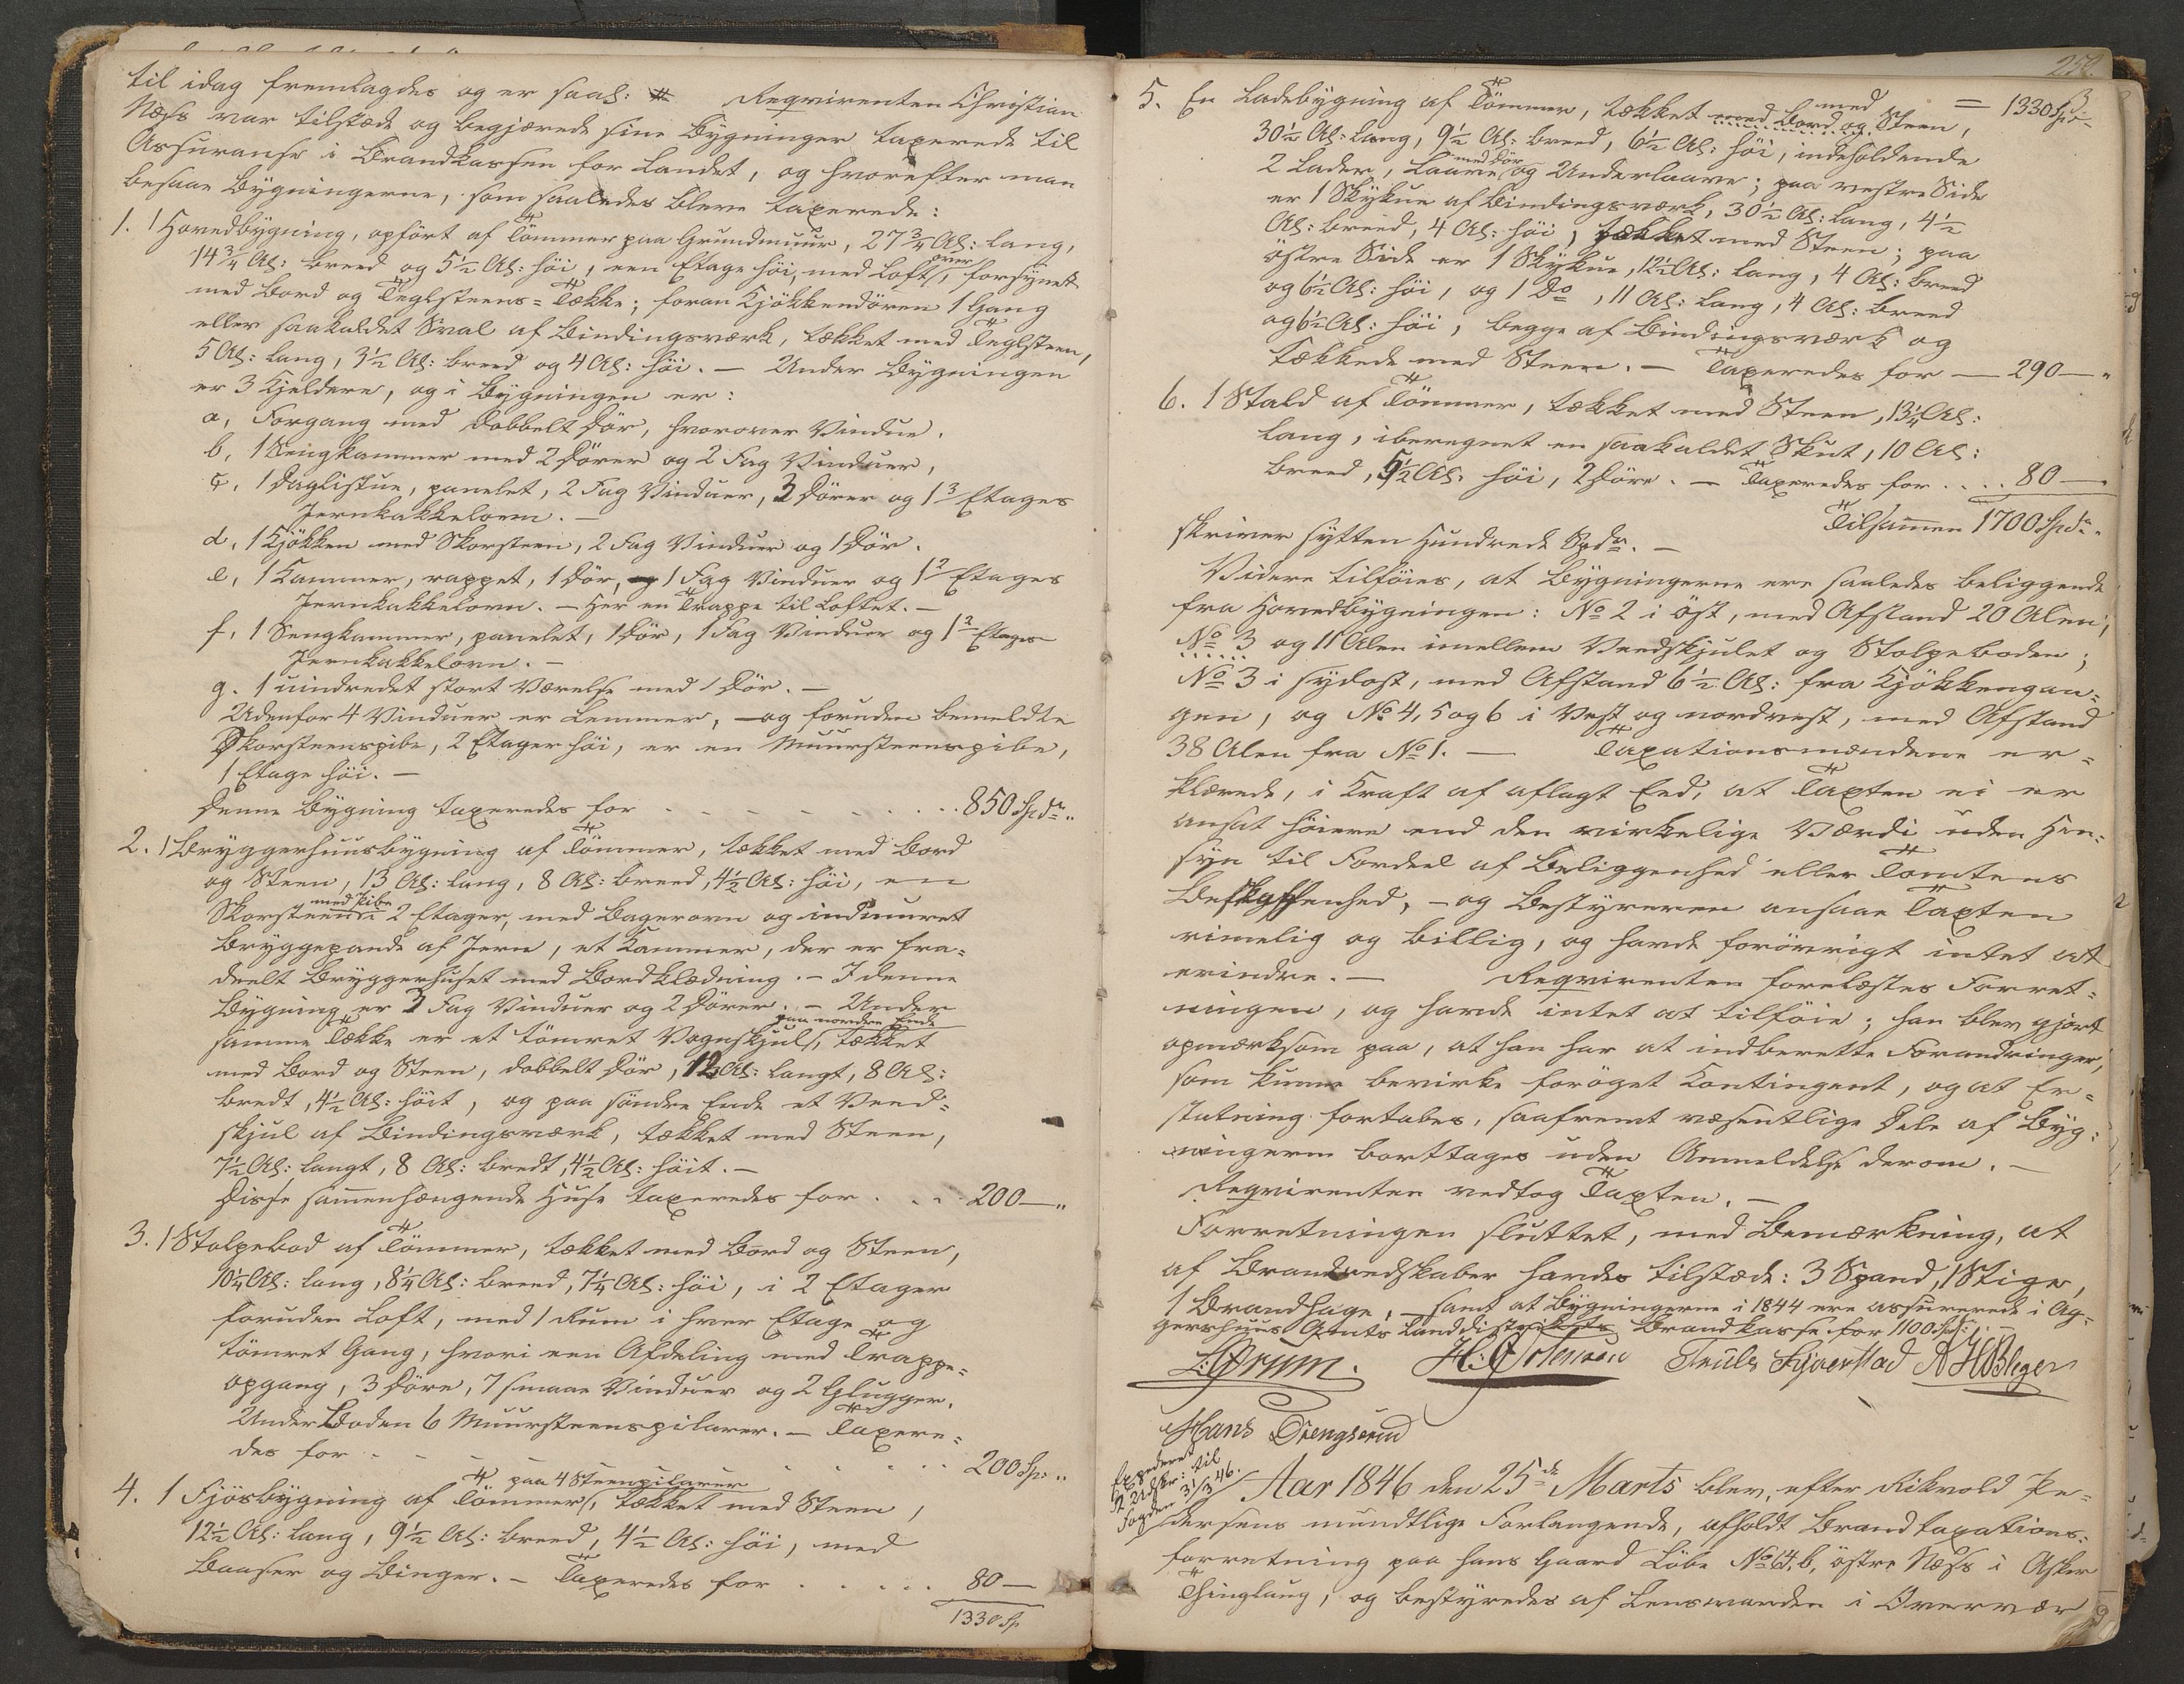 til idag fremlagdes og er saal: # Reqvirenten Christian
Næss var tilstæde og begjærede sine Bygninger taxerede til
Assuranse i Brandkassen for Landet, og hvorefter man
besaae Bygningerne, som saaledes bleve taxerede:
1. 1 Hovedbygning, opført af Tømmer paa Grundmuur, 27 3/4 Al: lang,
14 3/4 Al: breed og 5 1/2 Al: høi, een Etage høi, med Loft over, forsynet
med Bord og Teglsteens-Tække; foran Kjøkkendøren 1 Gang
eller saakaldet Sval af Bindingsværk, tækket med Teglsteen,
5 Al: lang, 3 1/2 Al: breed og 4 Al: høi. — Under Bygningen
er 3 Kjeldere, og i Bygningen er:
a, Forgang med dobbelt Dør, hvorover Vindue.
b, 1 Sengkammer med 2 Dører og 2 Fag Vinduer,
c, 1 Dagligstue, panelet, 2 Fag Vinduer, 3 Dører og 1 3 Etages
Jernkakkelovn. —
d, 1 Kjøkken med Skorsteen, 2 Fag Vinduer og 1 Dør.
e, 1 Kammer, rappet, 1 Dør, 1 Fag Vinduer og 1 2 Etages
Jernkakkelovn. — Her en Trappe til Loftet. —
f, 1 Sengkammer, panelet, 1 Dør, 1 Fag Vinduer og 1 3 Etages
Jernkakkelovn. —
g. 1 uindredet stort Værelse med 1 Dør. —
Udenfor 4 Vinduer er Lemmer, — og foruden bemeldte
Skorsteenspibe, 2 Etager høi, er en Muursteenspibe,
1 Etage høi. —
Denne Bygning taxeredes for . . . . . . . 850 Spdr "
2. 1 Bryggerhuusbygning af Tømmer, tækket med Bord
og Steen, 13 Al: lang, 8 Al: breed, 4 1/2 Al: høi, en
Skorsteen med Pibe i 2 Etager, med Bagerovn og indmuret
Bryggepande af Jern, et Kammer, der er fra-
deelt Bryggerhuset med Bordklædning. — I denne
Bygning er 3 Fag Vinduer og 2 Dører. — Under
samme Tække er et tømret Vognskjul paa nordre Ende, tækket
med Bord og Steen, dobbelt Dør, 12 Al: langt, 8 Al:
bredt, 4 1/2 Al: høit, og paa søndre Ende et Veed-
skjul af Bindingsværk, tækket med Steen,
7 1/2 Al: langt, 8 Al: bredt, 4 1/2 Al: høit. —
Disse sammenhængende Huse taxeredes for . . . 200 — "
3. 1 Stolpebod af Tømmer, tækket med Bord og Steen,
10 1/4 Al: lang, 8 1/4 Al: breed, 7 1/4 Al: høi, i 2 Etager
foruden Loft, med 1 Rum i hver Etage og
tømret Gang, hvori een Afdeling med Trappe-
opgang, 3 Døre, 7 smaae Vinduer og 2 Glugger.
Under Boden 6 Muursteenspilarer. — Taxere-
des for . . . . . . . 200 Sp: "
4. 1 Fjøsbygning af Tømmer paa 4 Steenpilarer, tækket med Steen,
12 1/2 Al: lang, 9 1/2 Al: breed, 4 1/2 Al: høi, med
Baaser og Binger. — Taxeredes for . . . . . 80 —
1330 Sp
= 1330 Spdr
5. En Ladebygning af Tømmer, tækket med Bord og med Steen,
30 1/2 Al: lang, 9 1/2 Al: breed, 6 1/2 Al: høi, indeholdende
2 Lader, Laave med Dør og Underlaave; paa vestre Side
er 1 Skykue af Bindingsværk, 30 1/2 Al: lang, 4 1/2
Al: breed, 4 Al: høi, tækket med Steen; paa
østre Side er 1 Skykue, 12 1/2 Al: lang, 4 Al: breed
og 6 1/2 Al: høi, og 1 Do, 11 Al: lang, 4 Al: breed
og 6 1/2 Al: høi, begge af Bindingsværk og
tækkede med Steen. — Taxeredes for — 290 — "
6. 1 Stald af Tømmer, tækket med Steen, 13 1/4 Al:
lang, iberegnet en saakaldet Skut, 10 Al:
breed, 5 1/2 Al: høi, 2 Døre. — Taxeredes for . . . . 80 — "
Tilsammen 1700 Spdr "
skriver sytten Hundrede Spdr. —
Videre tilføies, at Bygningerne ere saaledes beliggende
fra Hovedbygningen: No 2 i øst, med Afstand 20 Alen,
No 3 og 11 Alen imellem Veedskjulet og Stolpeboden;
No 3 i sydost, med Afstand 6 1/2 Al: fra Kjøkkengan-
gen, og No 4, 5 og 6 i Vest og nordvest, med Afstand
38 Alen fra No 1. — Taxationsmændene er-
klærede, i Kraft af aflagt Eed, at Taxten ei er
ansat høiere end den virkelige Værdi uden Hen-
syn til Fordeel af Beliggenhed eller Tomtens
Beskaffenhed, — og Bestyreren ansaae Taxten
rimelig og billig, og havde forøvrigt intet at
erindre. — Reqvirenten forelæstes Forret-
ningen, og havde intet at tilføie; han blev gjort
opmærksom paa, at han har at indberette Forandringer,
som kunne bevirke forøget Kontingent, og at Er-
statning fortabes, saafremt væsentlige Dele af Byg-
ningerne borttages uden Anmeldelse derom. —
Reqvirenten vedtog Taxten. —
Forretningen sluttet, med Bemærkning, at
af Brandredskaber havdes tilstæde: 3 Spand, 1 Stige,
1 Brandhage, — samt at Bygningerne i 1844 ere assurerede i Ag-
gershuus Amts Landdistrikts Brandkasse for 1100 Spd: —
Truls Skjævestad
Hans Drengsrud
Expederet til
Fogden 31/3 46.
Aar 1846 den 25de Marts blev, efter Rikvold Pe-
dersens mundtlige Forlangende, afholdt Brandtaxations-
forretning paa hans Gaard Løbe No 64, b, østre Næss i Asker
Thinglaug, og bestyredes af Lensmanden i Overvær